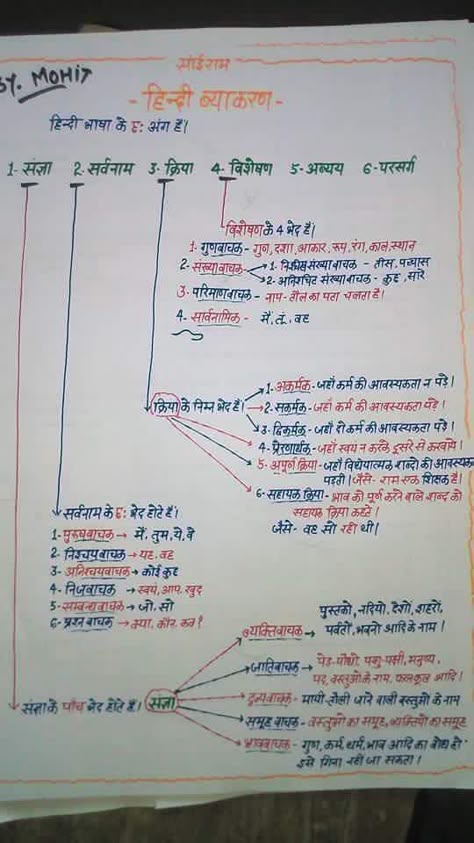 साईराम
BY. MOHIT
- हिन्दी व्याकरण -
हिन्दी भाषा के ६: अंग हैं।
1- संज्ञा 2- सर्वनाम 3- क्रिया 4- विशेषण 5- अव्यय 6- परसर्ग
विशेषण के 4 भेद हैं।
1- गुणवाचक - गुण, दशा, आकार, रूप, रंग, काल, स्थान
2- संख्यावाचक 1- निश्चित संख्या वाचक - तीस, पच्चास
2- अनिश्चित संख्या वाचक - कुछ, सारे
3- परिमाणवाचक - नाप-तौल का पता चलता है।
4- सार्वनामिक - मैं, तू, वह
क्रिया के निम्न भेद हैं।
1- अकर्मक - जहाँ कर्म की आवश्यकता न पड़े।
2- सकर्मक - जहाँ कर्म की आवश्यकता पड़े।
3- द्विकर्मक - जहाँ दो कर्म की आवश्यकता पड़े।
4- प्रेरणार्थक - जहाँ स्वयं न करके दूसरे से करवाये।
5- अपूर्ण क्रिया - जहाँ विधेयात्मक शब्दो की आवश्यक
पड़ती। जैसे - राम एक शिक्षक है।
6- सहायक क्रिया - भाव को पूर्ण करने वाले शब्द को
सहायक क्रिया कहते।
जैसे - वह सो रही थी।
सर्वनाम के ६: भेद होते हैं।
1- पुरुषवाचक → मैं, तुम, ये, वे
2- निश्चयवाचक → यह, वह
3- अनिश्चयवाचक → कोई कुछ
4- निजवाचक → स्वयं, आप, खुद
5- सम्बन्धवाचक → जो, सो
6- प्रश्नवाचक → क्या, कौन, कब?
संज्ञा के पाँच भेद होते हैं। संज्ञा
व्यक्तिवाचक → पुस्तको, नदियो, देशों, शहरो,
पर्वतों, भवनो आदि के नाम।
जातिवाचक - पेड़-पौधो, पशु-पक्षी, मनुष्य,
पद, वस्तुओ के नाम, फलफूल आदि।
द्रव्यवाचक - मापी-तौली जाने वाली वस्तुओ के नाम
समूह वाचक - वस्तुओ का समूह, व्यक्तियो का समूह
भाववाचक - गुण, कर्म, धर्म, भाव आदि का बोध हो
इसे गिना नहीं जा सकता।